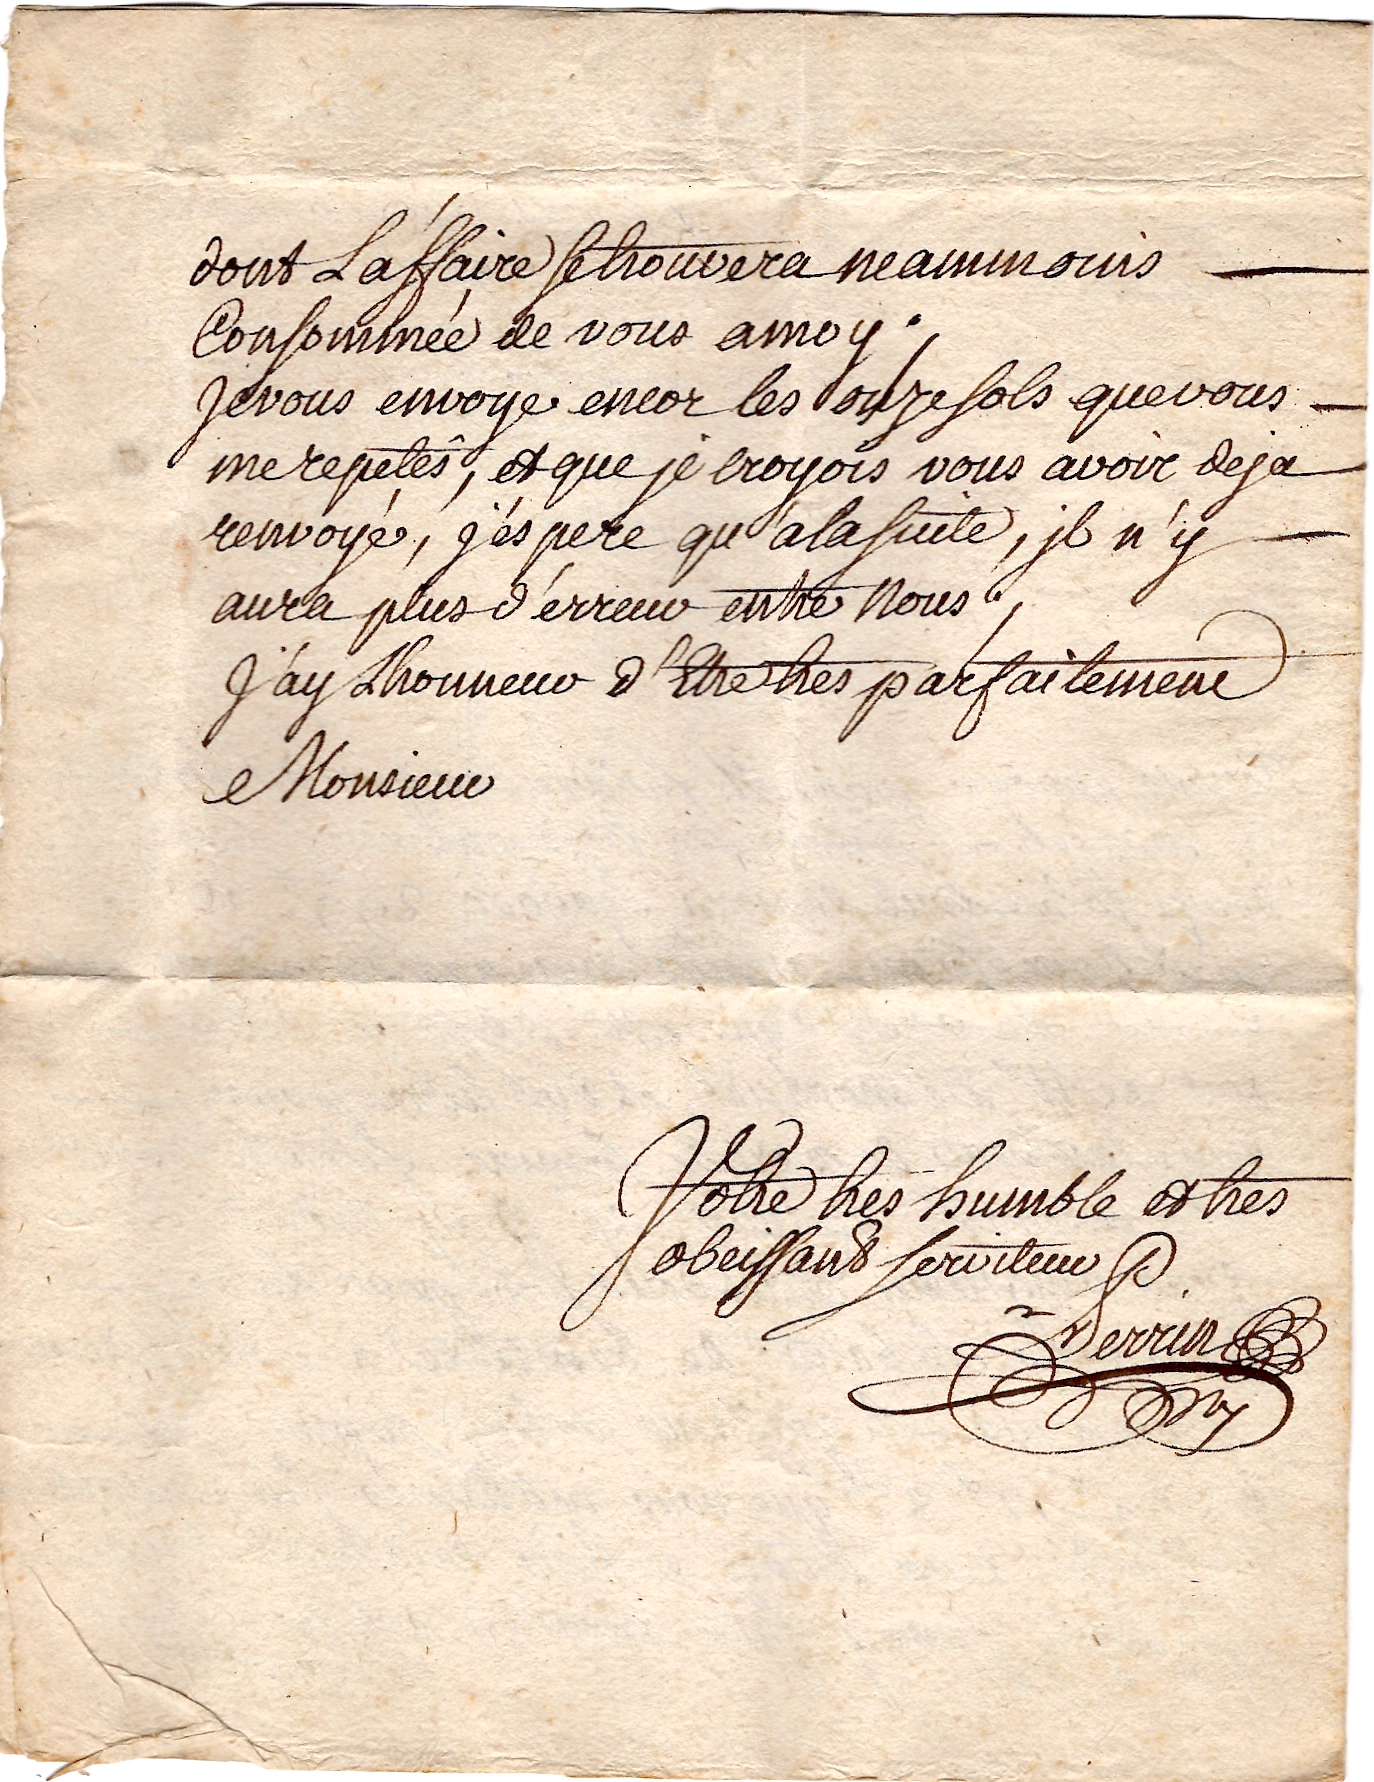 dont L'affaire se trouvera neammoins
Consommée de vous amoy.
Je vous envoye encor les onze sols que vous
me repetés, et que je croyois vous avoir deja
renvoyé, j'éspere qu'alasuite, jl n'y
aura plus d'érreur entre Nous.
J'ay Lhonneur d'Etre tres parfaitement
Monsieur
Votre tres humble et tres
obeissant serviteur
Perrin